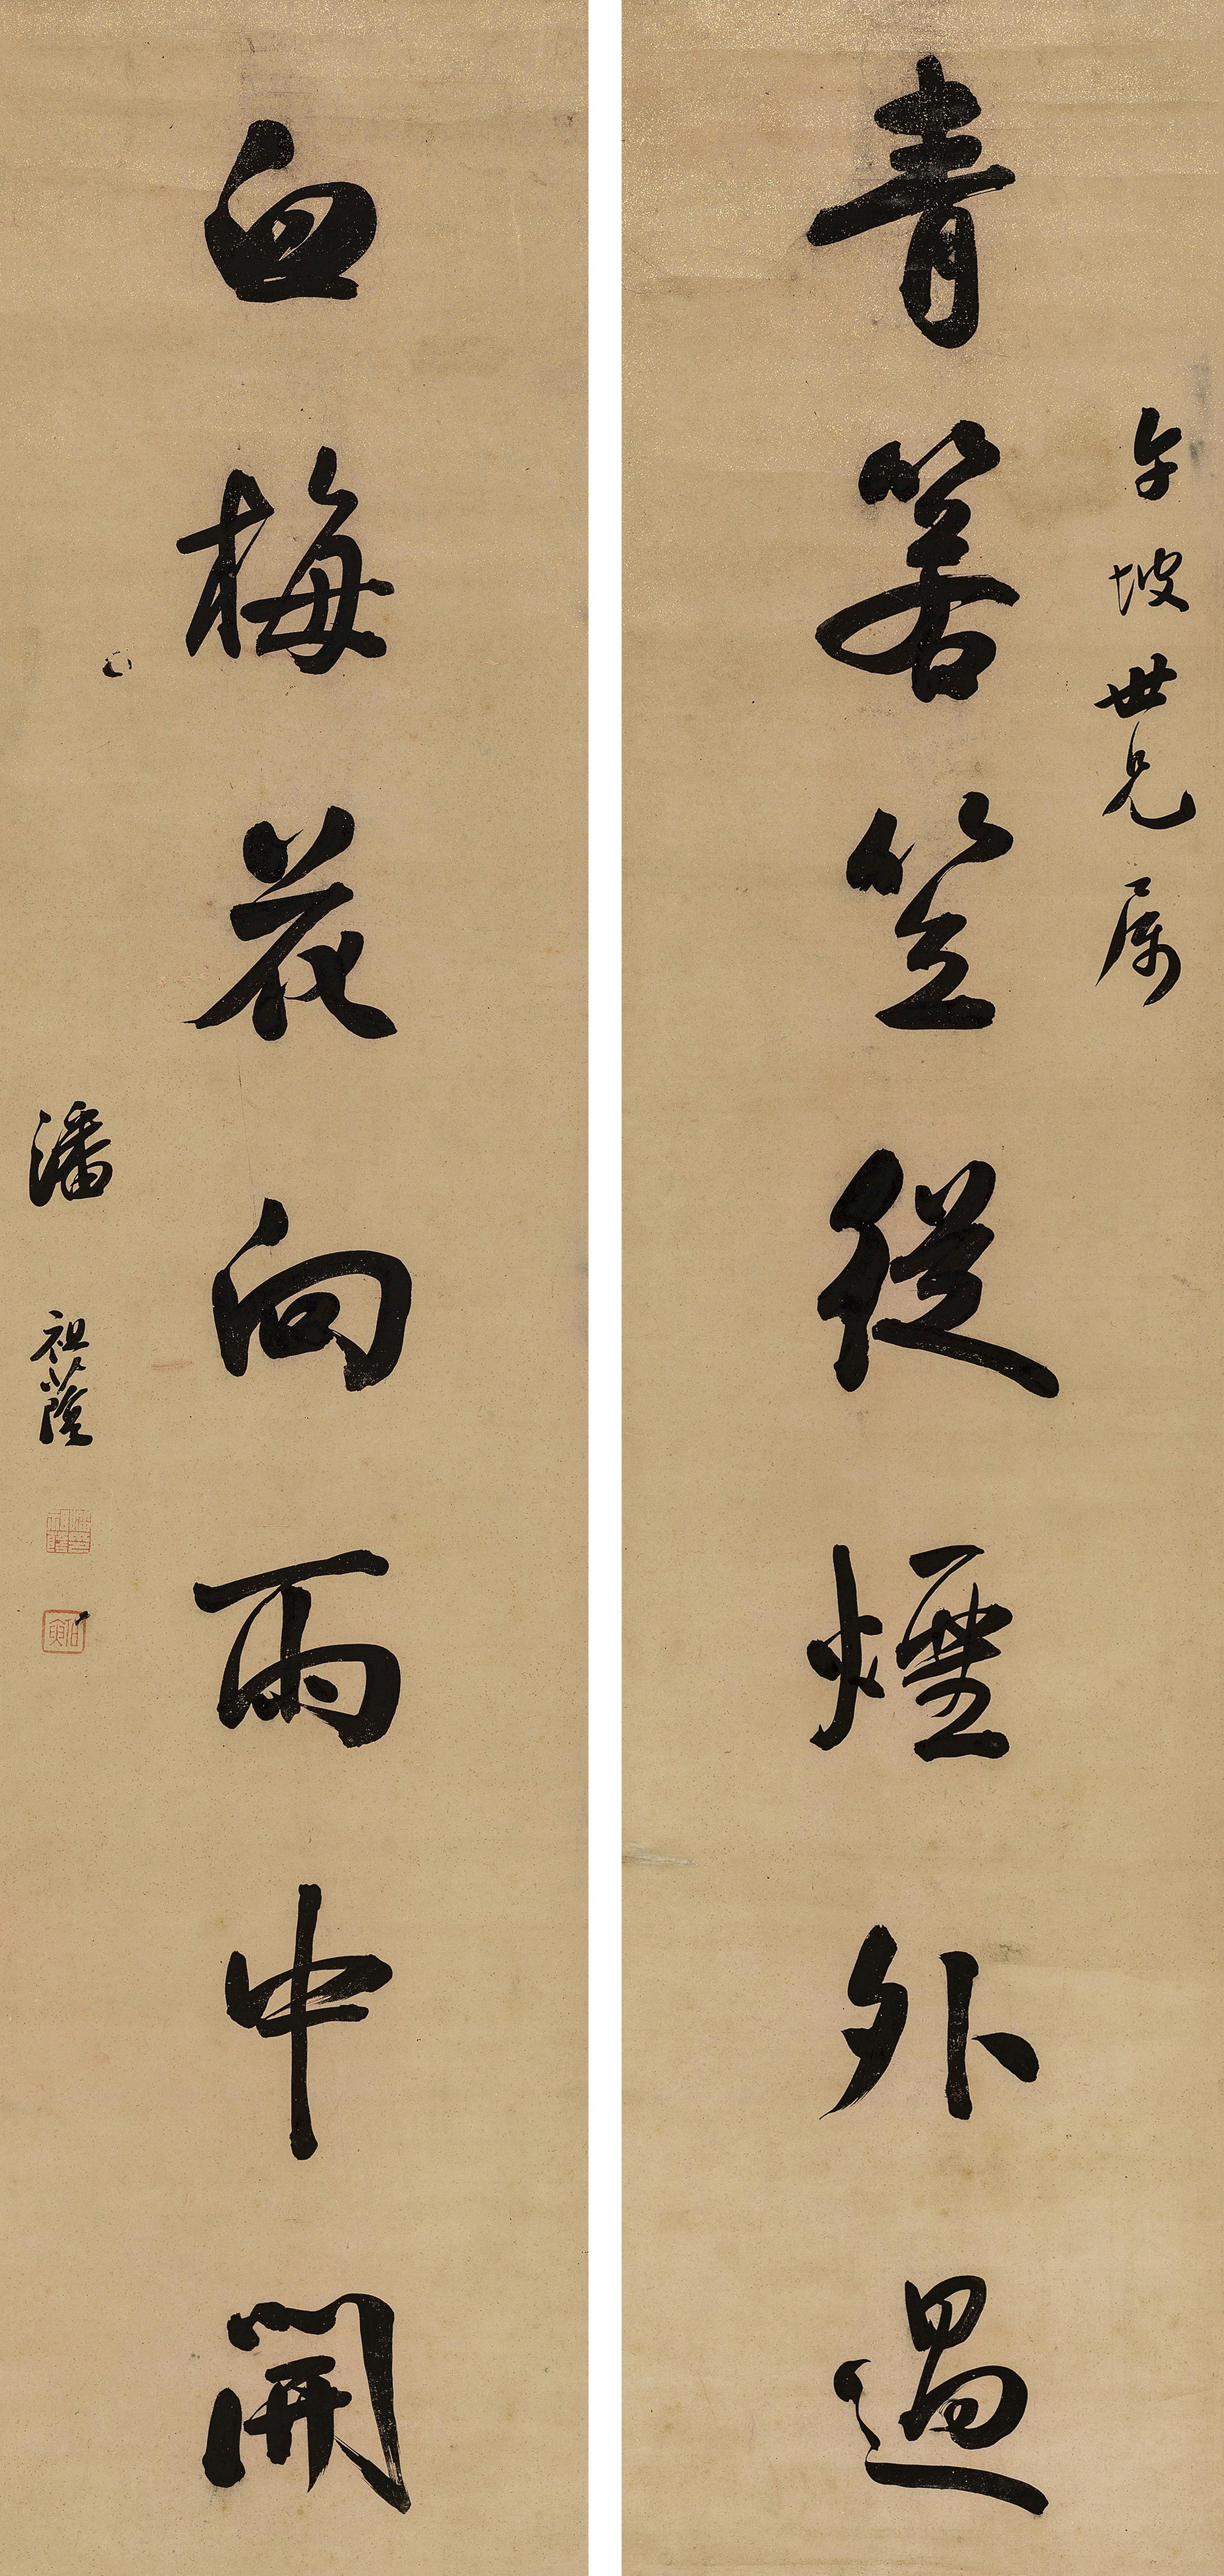 青箬笠從煙外過
午坡世兄屬
白梅花向雨中開
潘祖蔭